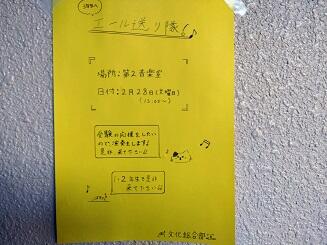 3年生へ
エール送り隊!
場所：第2音楽室
日付：2月28日(火曜日)
(12:00～)
受験の応援をしたい
ので演奏をします♪
是非 来て下さい♫
1・2年生も是非
来て下さい♫
文化総合部